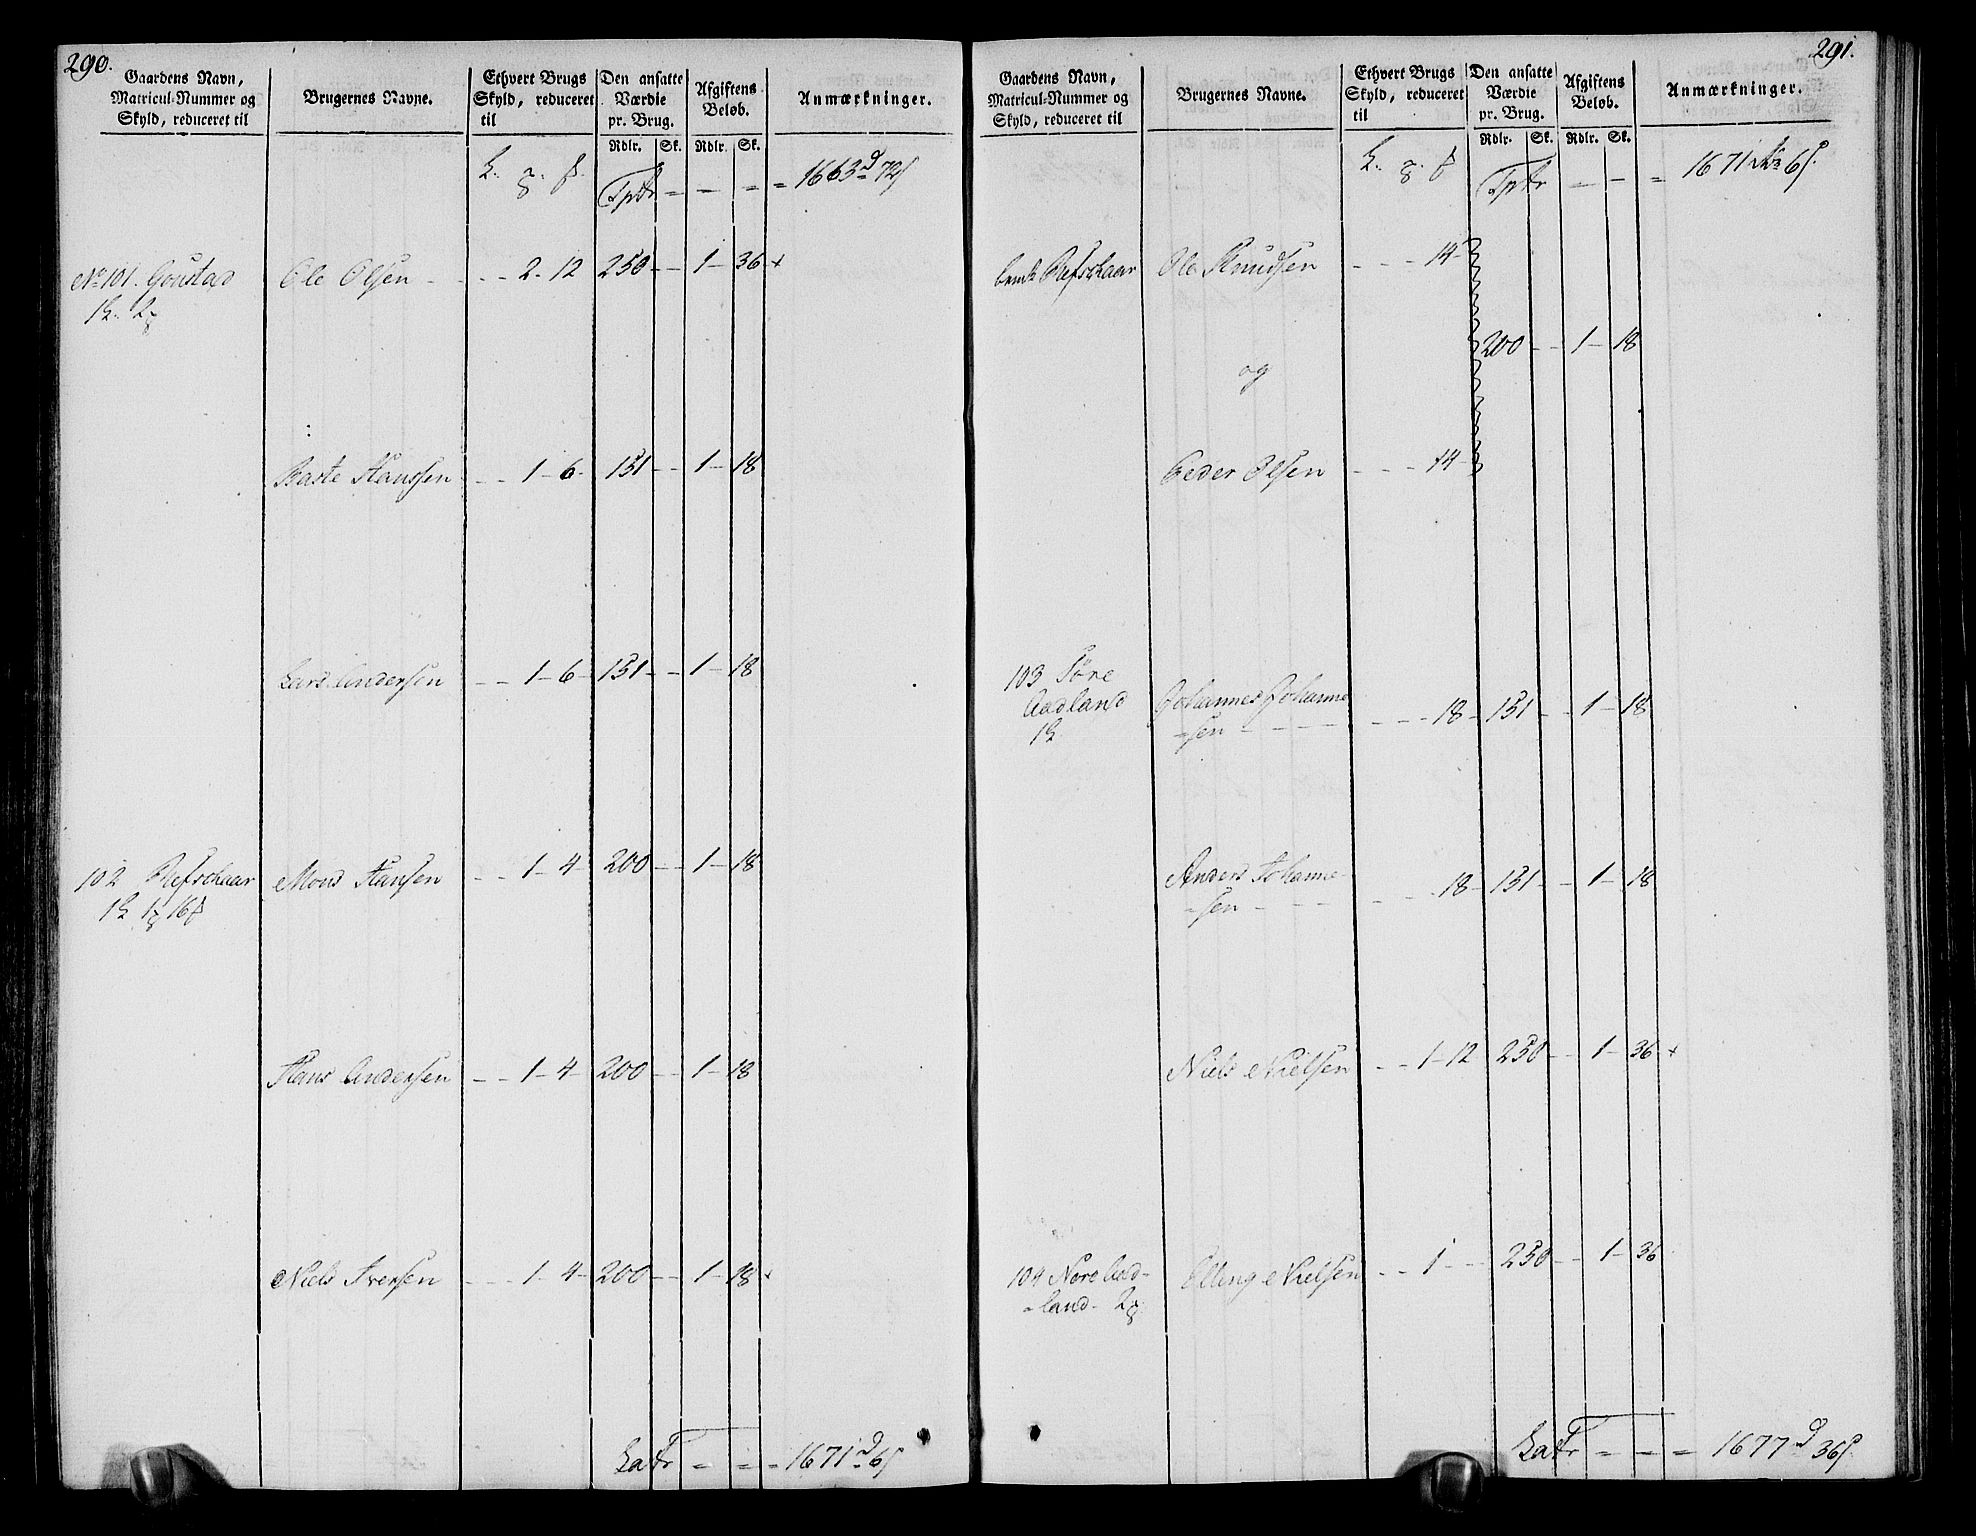 290.
Gaardens Navn, Matricul-Nummer og Skyld, reduceret til
Brugernes Navne.
Ethvert Brugs Skyld, reduceret til
Den ansatte Værdie pr. Brug.
Afgiftens Beløb.
Anmærkninger.
Rdlr. Sk. Rdlr. Sk.
Tptr = – = = 1663 d 72 s
No 101. Goustad Ole Olsen - - - 2 - 12 250 - - 1 - 36 +
Baste Hanssen - - 1 - 6 - 151 - - 1 - 18
Lars Andersen - - 1 - 6 - 151 - - 1 - 18
102 Refschaar Mons Hansen - - 1 - 4 - 200 - - 1 - 18
Hans Andersen - - 1 - 4 - 200 - - 1 - 18
Niels Iversen - - - 1 - 4 - 200 - - 1 - 18
LaTr = = = 1671 d 6 s
291.
Gaardens Navn, Matricul-Nummer og Skyld, reduceret til
Brugernes Navne.
Ethvert Brugs Skyld, reduceret til
Den ansatte Værdie pr. Brug.
Afgiftens Beløb.
Anmærkninger.
Rdlr. Sk. Rdlr. Sk.
Tptr – – = 1671 6 s
Refschaar Ole Knudsen - - - 14 -
200 - - 1 - 18
og
Peder Olsen - - - 14 -
103 Søre
Aadland Johannes Johanne
=sen - - - - - - 18 - 151 - - 1 - 18
Anders Johanne
=sen - - - - - 18 - 151 - - 1 - 18
Niels Nielsen - - 1 - 12 250 - - 1 - 36 +
104 Nore Aad-
=land Elling Nielsen - - 1 - - 250 - - 1 - 36
LaTr = = = 1677 d 36 s